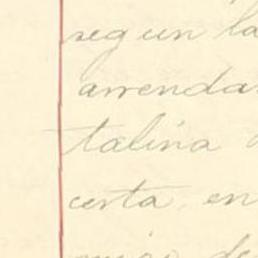 segun la
arrenda
talina
certa, en